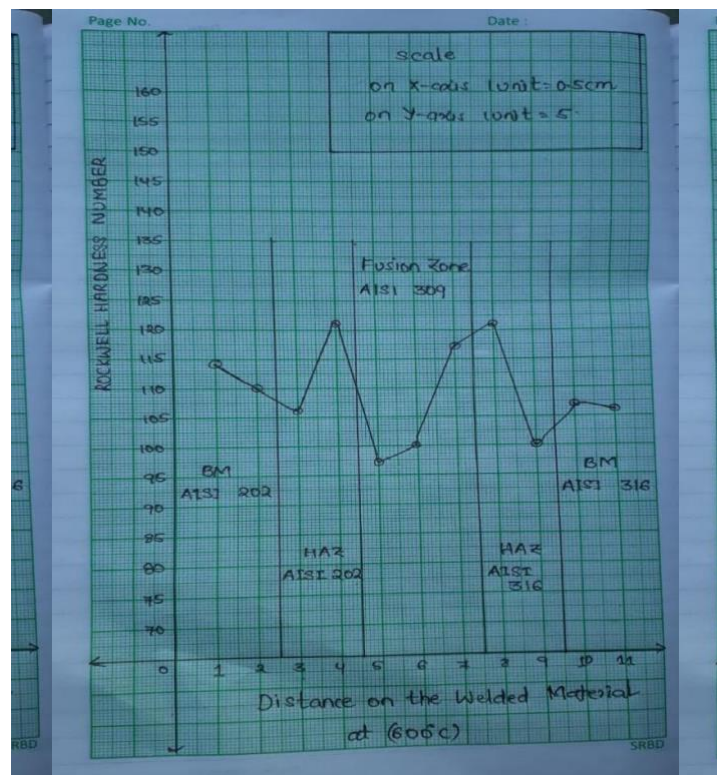 Page No.
Date :
scale
on X-axis 1unit = 0.5cm
on Y-axis 1unit = 5.
ROCKWELL HARDNESS NUMBER
160
155
150
145
140
135
130
125
120
115
110
105
100
95
90
85
80
75
70
Fusion Zone
AISI 309
BM
AISI 202
HAZ
AISI 202
HAZ
AISI
316
BM
AISI 316
0 1 2 3 4 5 6 7 8 9 10 11
Distance on the Welded Material
at (600°C)
SRBD
6
RBD